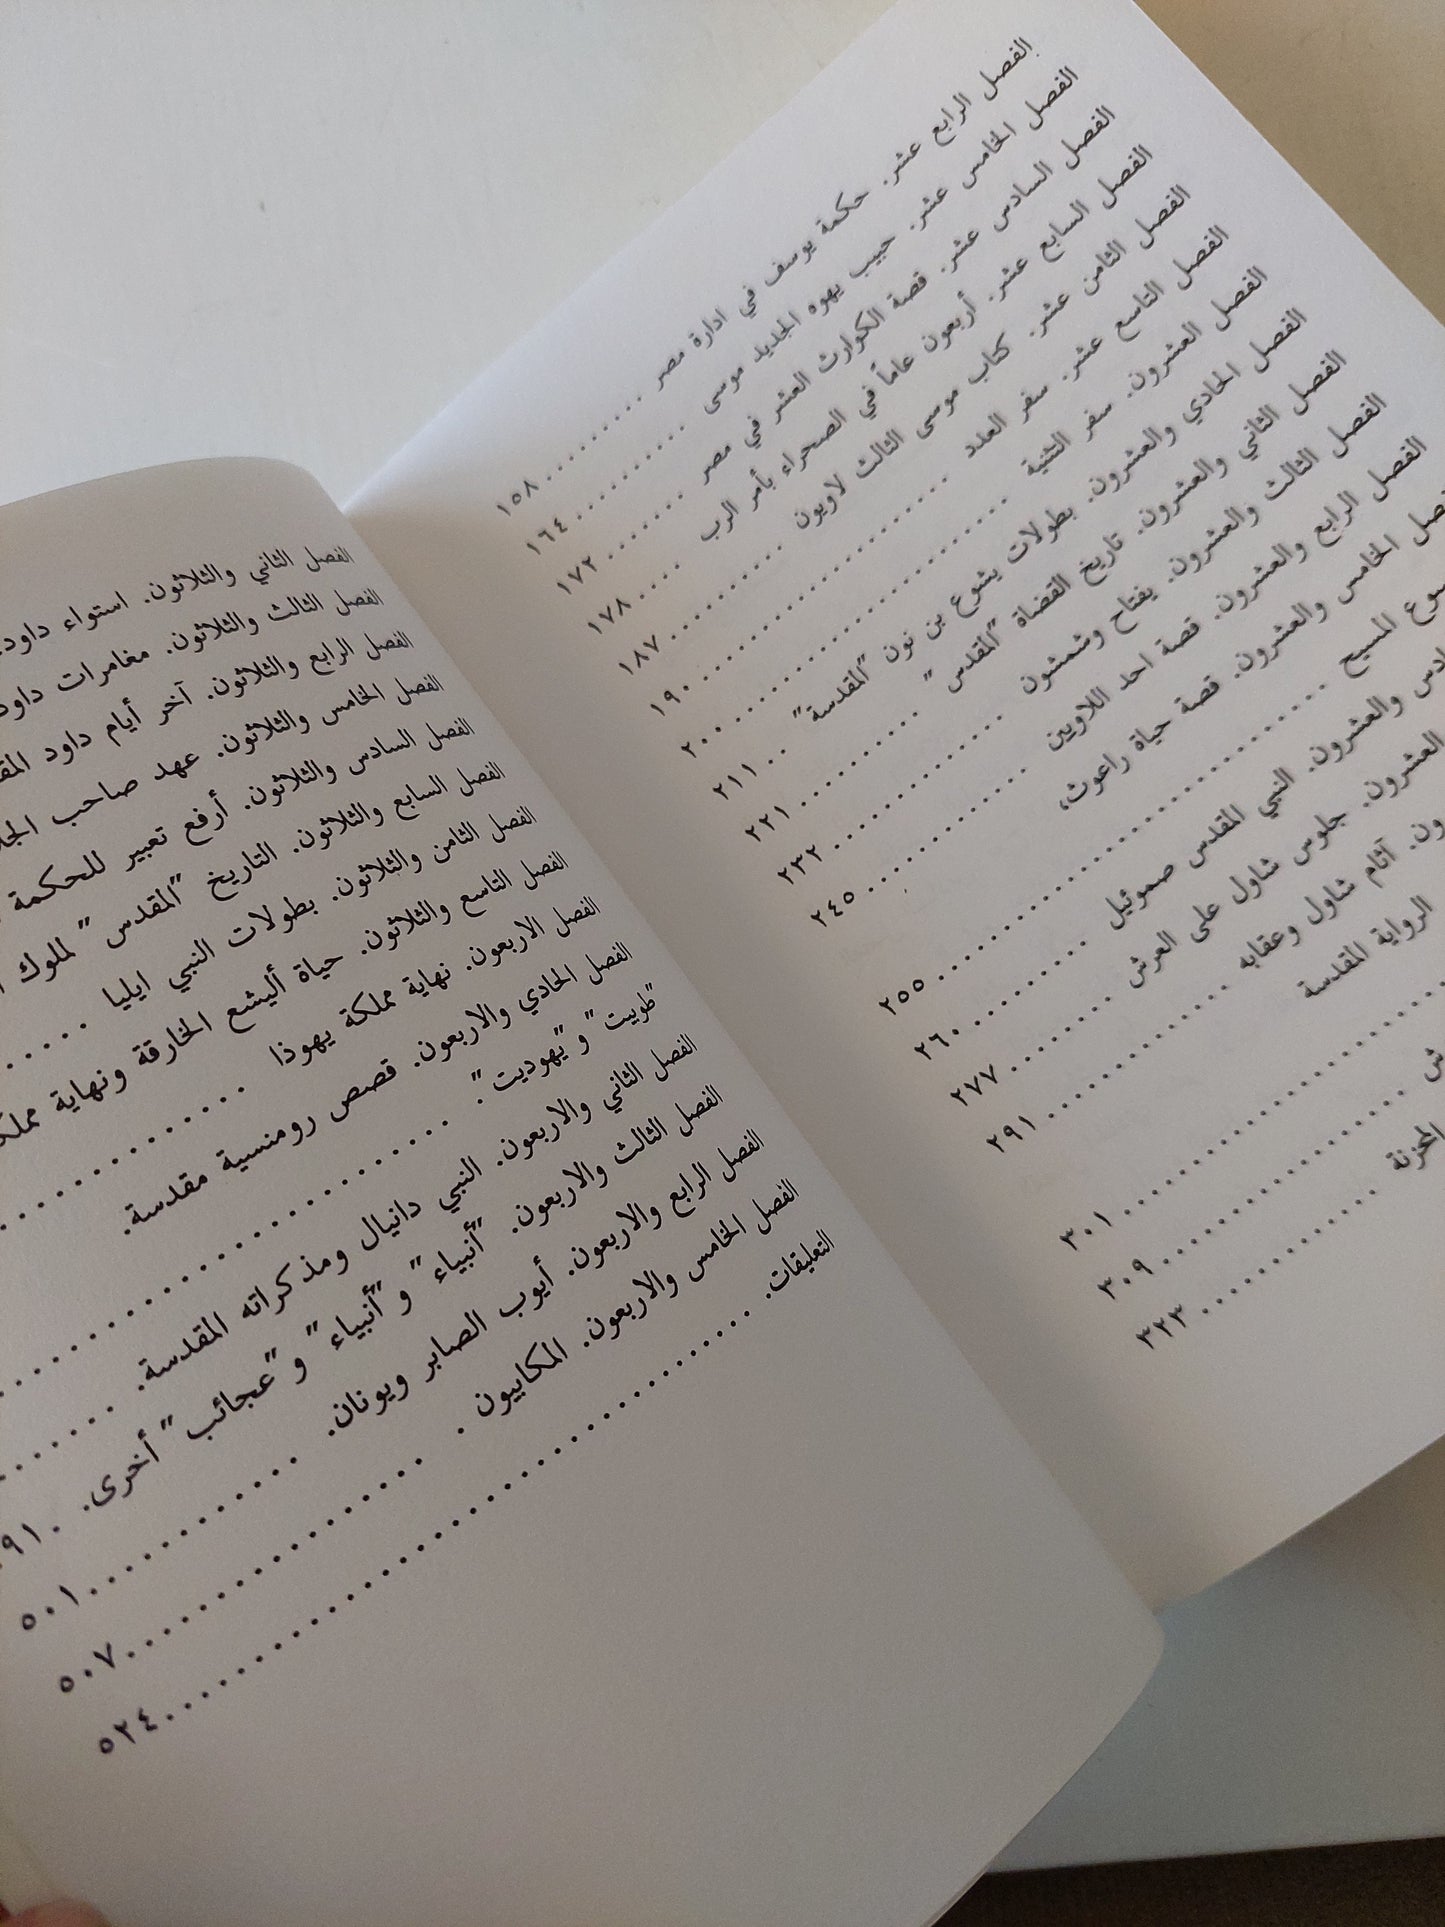 الفصل الرابع عشر. حكمة يوسف في ادارة مصر .......... ١٥٨
الفصل الخامس عشر. حبيب يهوه الجديد موسى .......... ١٦٤
الفصل السادس عشر. قصة الكوارث العشر في مصر ....... ١٧٢
الفصل السابع عشر. أربعون عاماً في الصحراء بأمر الرب .... ١٧٨
الفصل الثامن عشر. كتاب موسى الثالث لاويون ......... ١٨٧
الفصل التاسع عشر. سفر العدد ................. ١٩٠
الفصل العشرون. سفر التثنية ................. ٢٠٠
الفصل الحادي والعشرون. بطولات يشوع بن نون "المقدسة" .. ٢١١
الفصل الثاني والعشرون. تاريخ القضاة "المقدس" ......... ٢٢١
الفصل الثالث والعشرون. يفتاح وشمشون ............ ٢٣٢
الفصل الرابع والعشرون. قصة احد اللاويين ........... ٢٤٥
الخامس والعشرون. قصة حياة راعوث،
المسيح ........................ ٢٥٥
والعشرون. النبي المقدس صموئيل ......... ٢٦٠
العشرون. جلوس شاول على العرش ........ ٢٧٧
آثام شاول وعقابه ............... ٢٩١
الرواية المقدسة
.................... ٣٠١
................ ٣٠٩
المحزنة ............ ٣٢٣
الفصل الثاني والثلاثون. استواء داود
الفصل الثالث والثلاثون. مغامرات داود
الفصل الرابع والثلاثون. آخر أيام داود
الفصل الخامس والثلاثون. عهد صاحب
الفصل السادس والثلاثون. أرفع تعبير للحكمة
الفصل السابع والثلاثون. التاريخ "المقدس" لملوك
الفصل الثامن والثلاثون. بطولات النبي ايليا .....
الفصل التاسع والثلاثون. حياة أليشع الخارقة ونهاية
الفصل الاربعون. نهاية مملكة يهوذا ............
الفصل الحادي والاربعون. قصص رومنسية مقدسة.
"طوبيت" و"يهوديت". ....................
الفصل الثاني والاربعون. النبي دانيال ومذكراته المقدسة. .......
الفصل الثالث والاربعون. "أنبياء" و"أنبياء" و"عجائب" أخرى. . ٩١
الفصل الرابع والاربعون. أيوب الصابر ويونان. ............ ٥٠١
الفصل الخامس والاربعون. المكابيون . ................ ٥٠٧
التعليقات. .............................. ٥٢٤